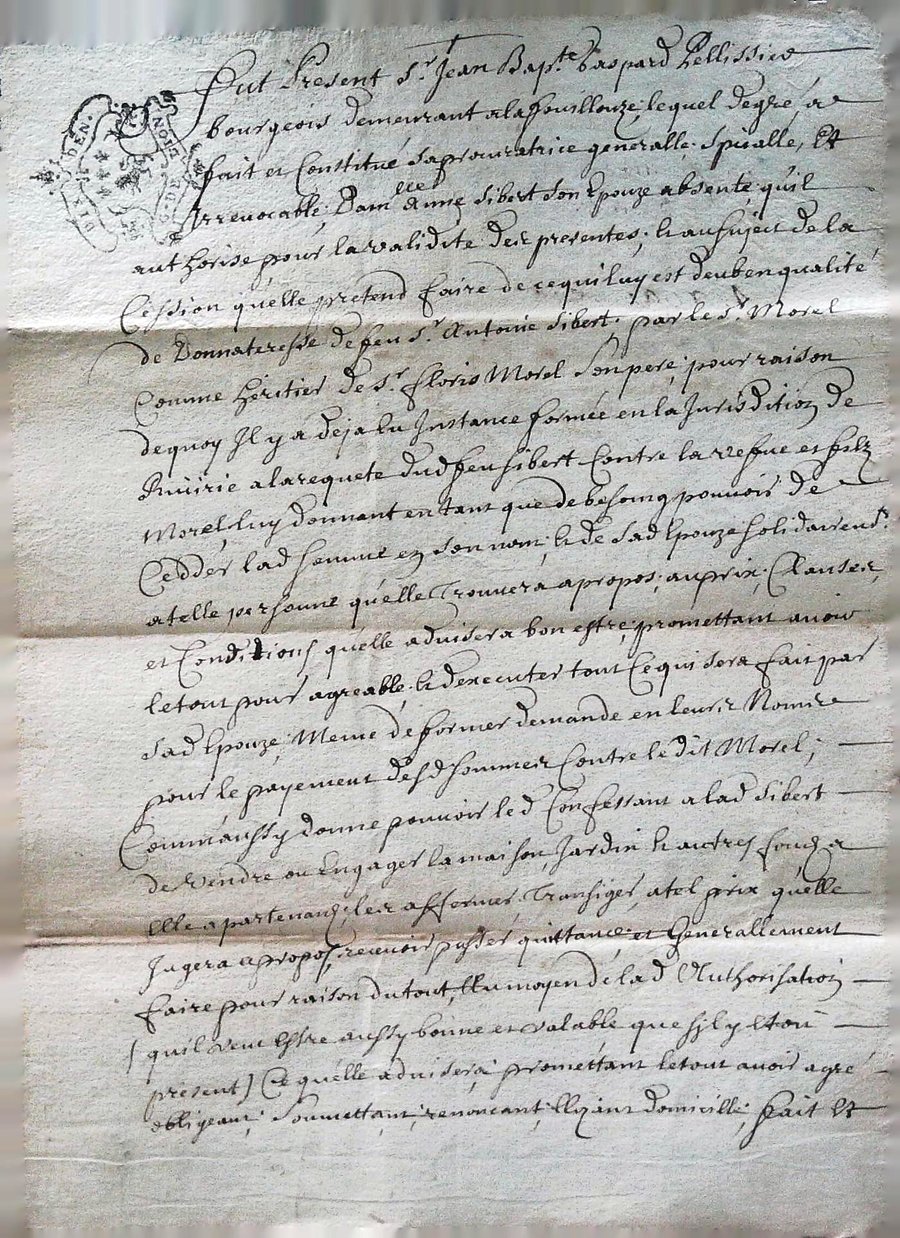 Fut Present Sr. Jean Bapte. Gaspard Pellissier
bourgeois demeurant a la fouillouze, lequel de gre, a
fait et Constitué sa procuratrice generalle, Spialle, Et
Irrevocable, Damlle Anne Sibert son Epouze absente, qu'il
authorise pour la validite des presentes, et au sujet de la
Cession qu'elle pretend faire de ce qui luy est deub en qualité
de Donnateresse de feu Sr. Antoine Sibert, par le Sr. Morel
Comme héritier de Sr. floris Morel Son pere, pour raison
de quoy Il y a deja Eu Instance formée en la Jurisdition de
a la requete dud feu Sibert Contre la vefve et filz
Morel, luy donnant en tant que de besoing pouvoir de
Cedder lad somme en son nom, et de sad Epouze solidairemt.
a telle personne qu'elle Trouvera a propos, au prix, Clauses,
et Conditions qu'elle advisera bon estre, promettant avoir
le tout pour agreable, et d'executer tout Ce qui sera fait par
sad Epouze, Meme de former demande en leurs Noms
pour le payement desd sommes Contre le dit Morel;
Comm'aussy donne pouvoir led Confessant a lad Sibert
de vendre ou Engager la maison, Jardin et autres fondz a
Elle apartenanz, les affermer, Transiger, a tel prix qu'elle
Jugera a propos, recevoir, passer quittance, et Generallement
faire pour raison du tout, Au moyen de lad Authorisation
( quil veut Estre aussy bonne et valable que s'il y Etoit
présent ) Ce qu'elle advisera, promettant le tout avoir agré
obligeant, Soumettant, renoncant, Elizant domicille, fait Et
DIX DEN.
G. DE LION